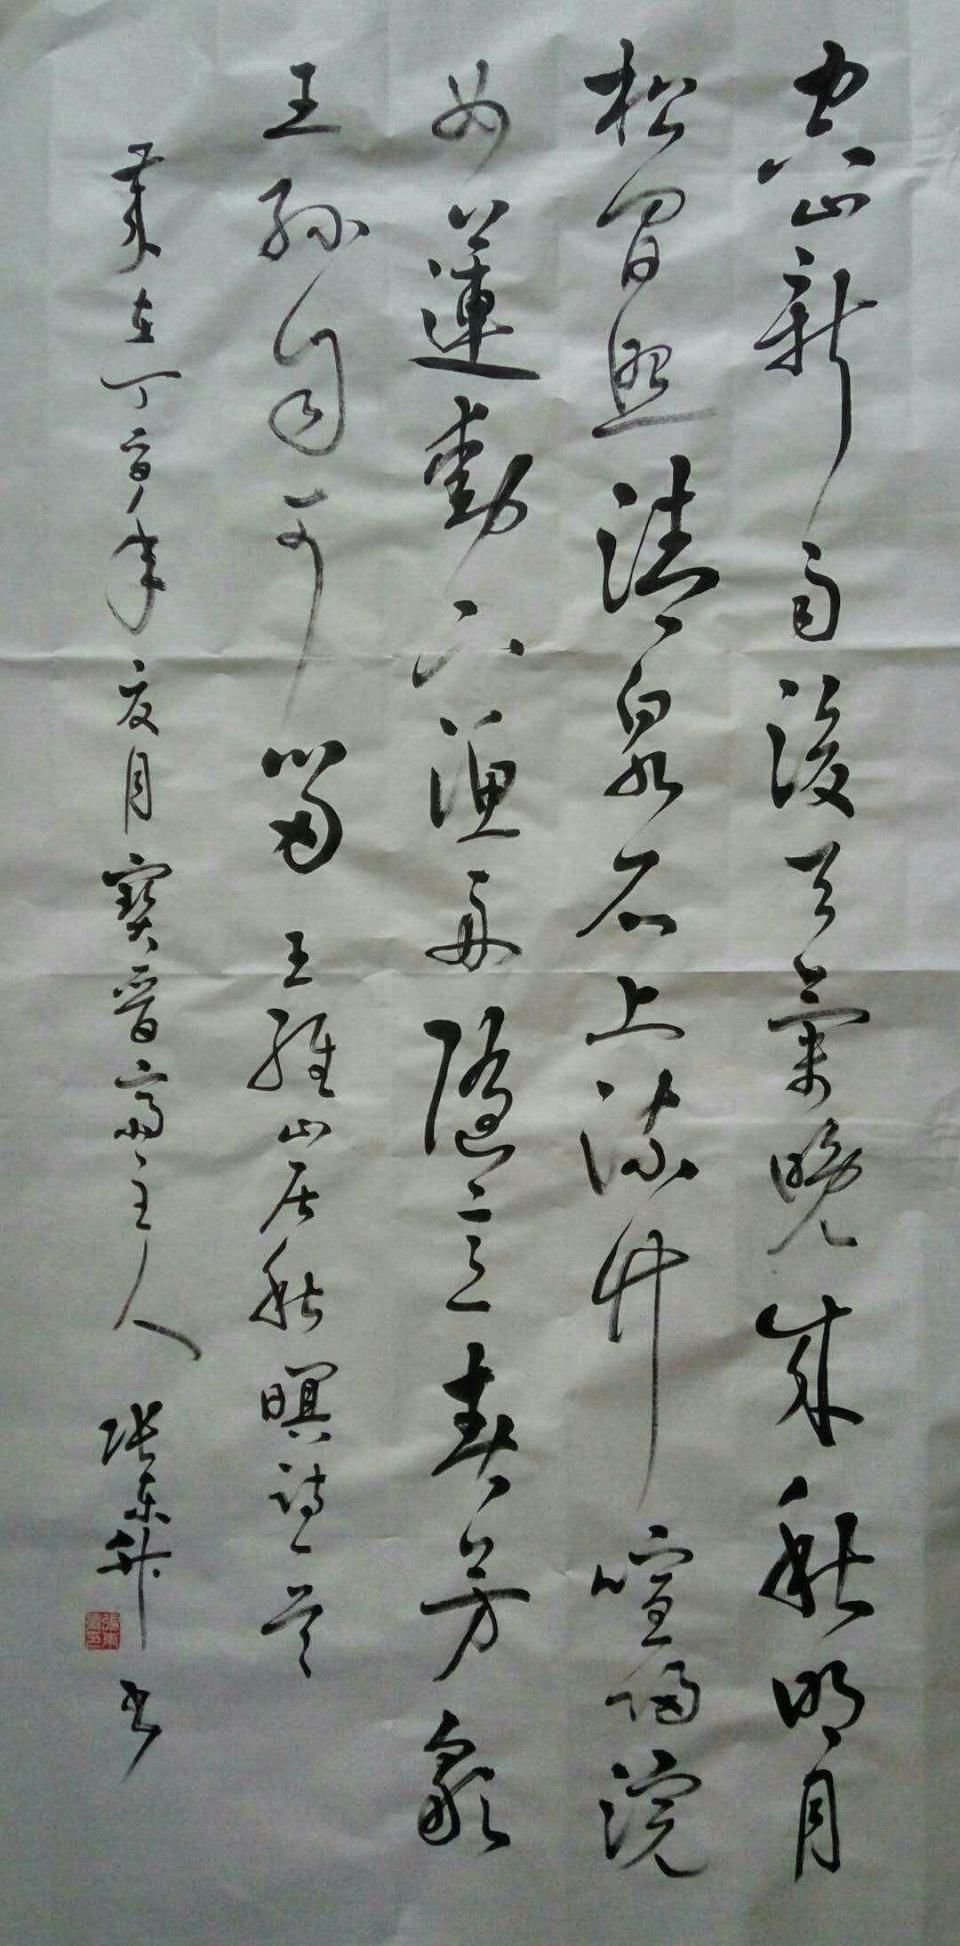 空山新雨後天氣晚来秋明月
松間照清泉石上流竹喧歸浣
女蓮動下漁舟隨意春芳歇
王孫自可留 王維山居秋暝詩一首
歲在丁酉年夏月寶晉齋主人 張东升书